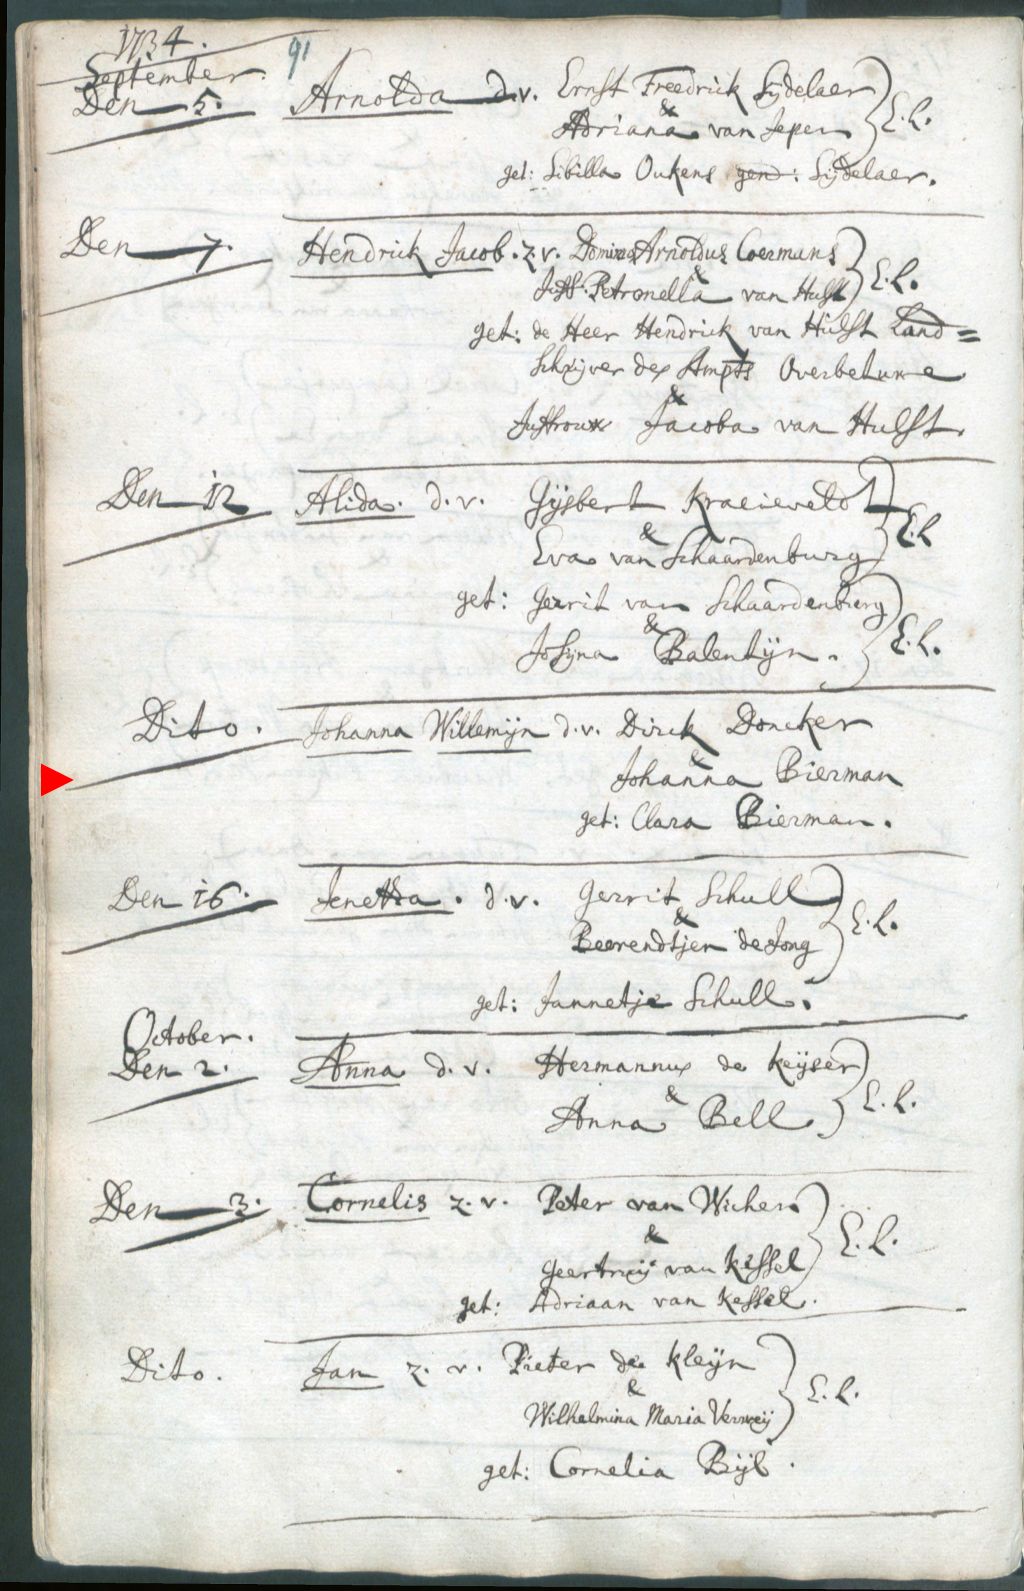 1734.
91
September.
Den 5. Arnolda d.v. Ernst Freedrick Sijdelaer
&
Adriana van Ieper E.L.
get: Sibilla Oukens gend: Sijdelaer.
Den 7. Hendrick Jacob. z.v. Arnoldus Coermans
&
Juff: Petronella van Hulst E.L.
get: de Heer Hendrick van Hulst Land=
Schrijver des Ampts Overbetuwe
&
Juffrouw Jacoba van Hulst.
Den 12 Alida. d.v. Gijsbert Kraeieveld
&
Eva van Schaardenburg E.L
get: Gerrit van Schaardenburg
&
Josijna Balentijn. E.L.
Dito. Johanna Willemijn d.v. Dirck Doncker
&
Johanna Bierman
get: Clara Bierman.
Den 16. Jenetta. d.v. Gerrit Schull
&
Beerendtjen de Jong E.L.
get: Jannetje Schull.
October.
Den 2. Anna d.v. Hermannus de Keijser
&
Anna Bell. E.L.
Den 3. Cornelis z.v. Peter van Wichen
&
Geertruij van Kessel E.L.
get: Adriaan van Kessel.
Dito. Jan z.v. Pieter de Kleijn
&
Wilhelmina Maria Verweij E.L.
get: Cornelia Bijl.